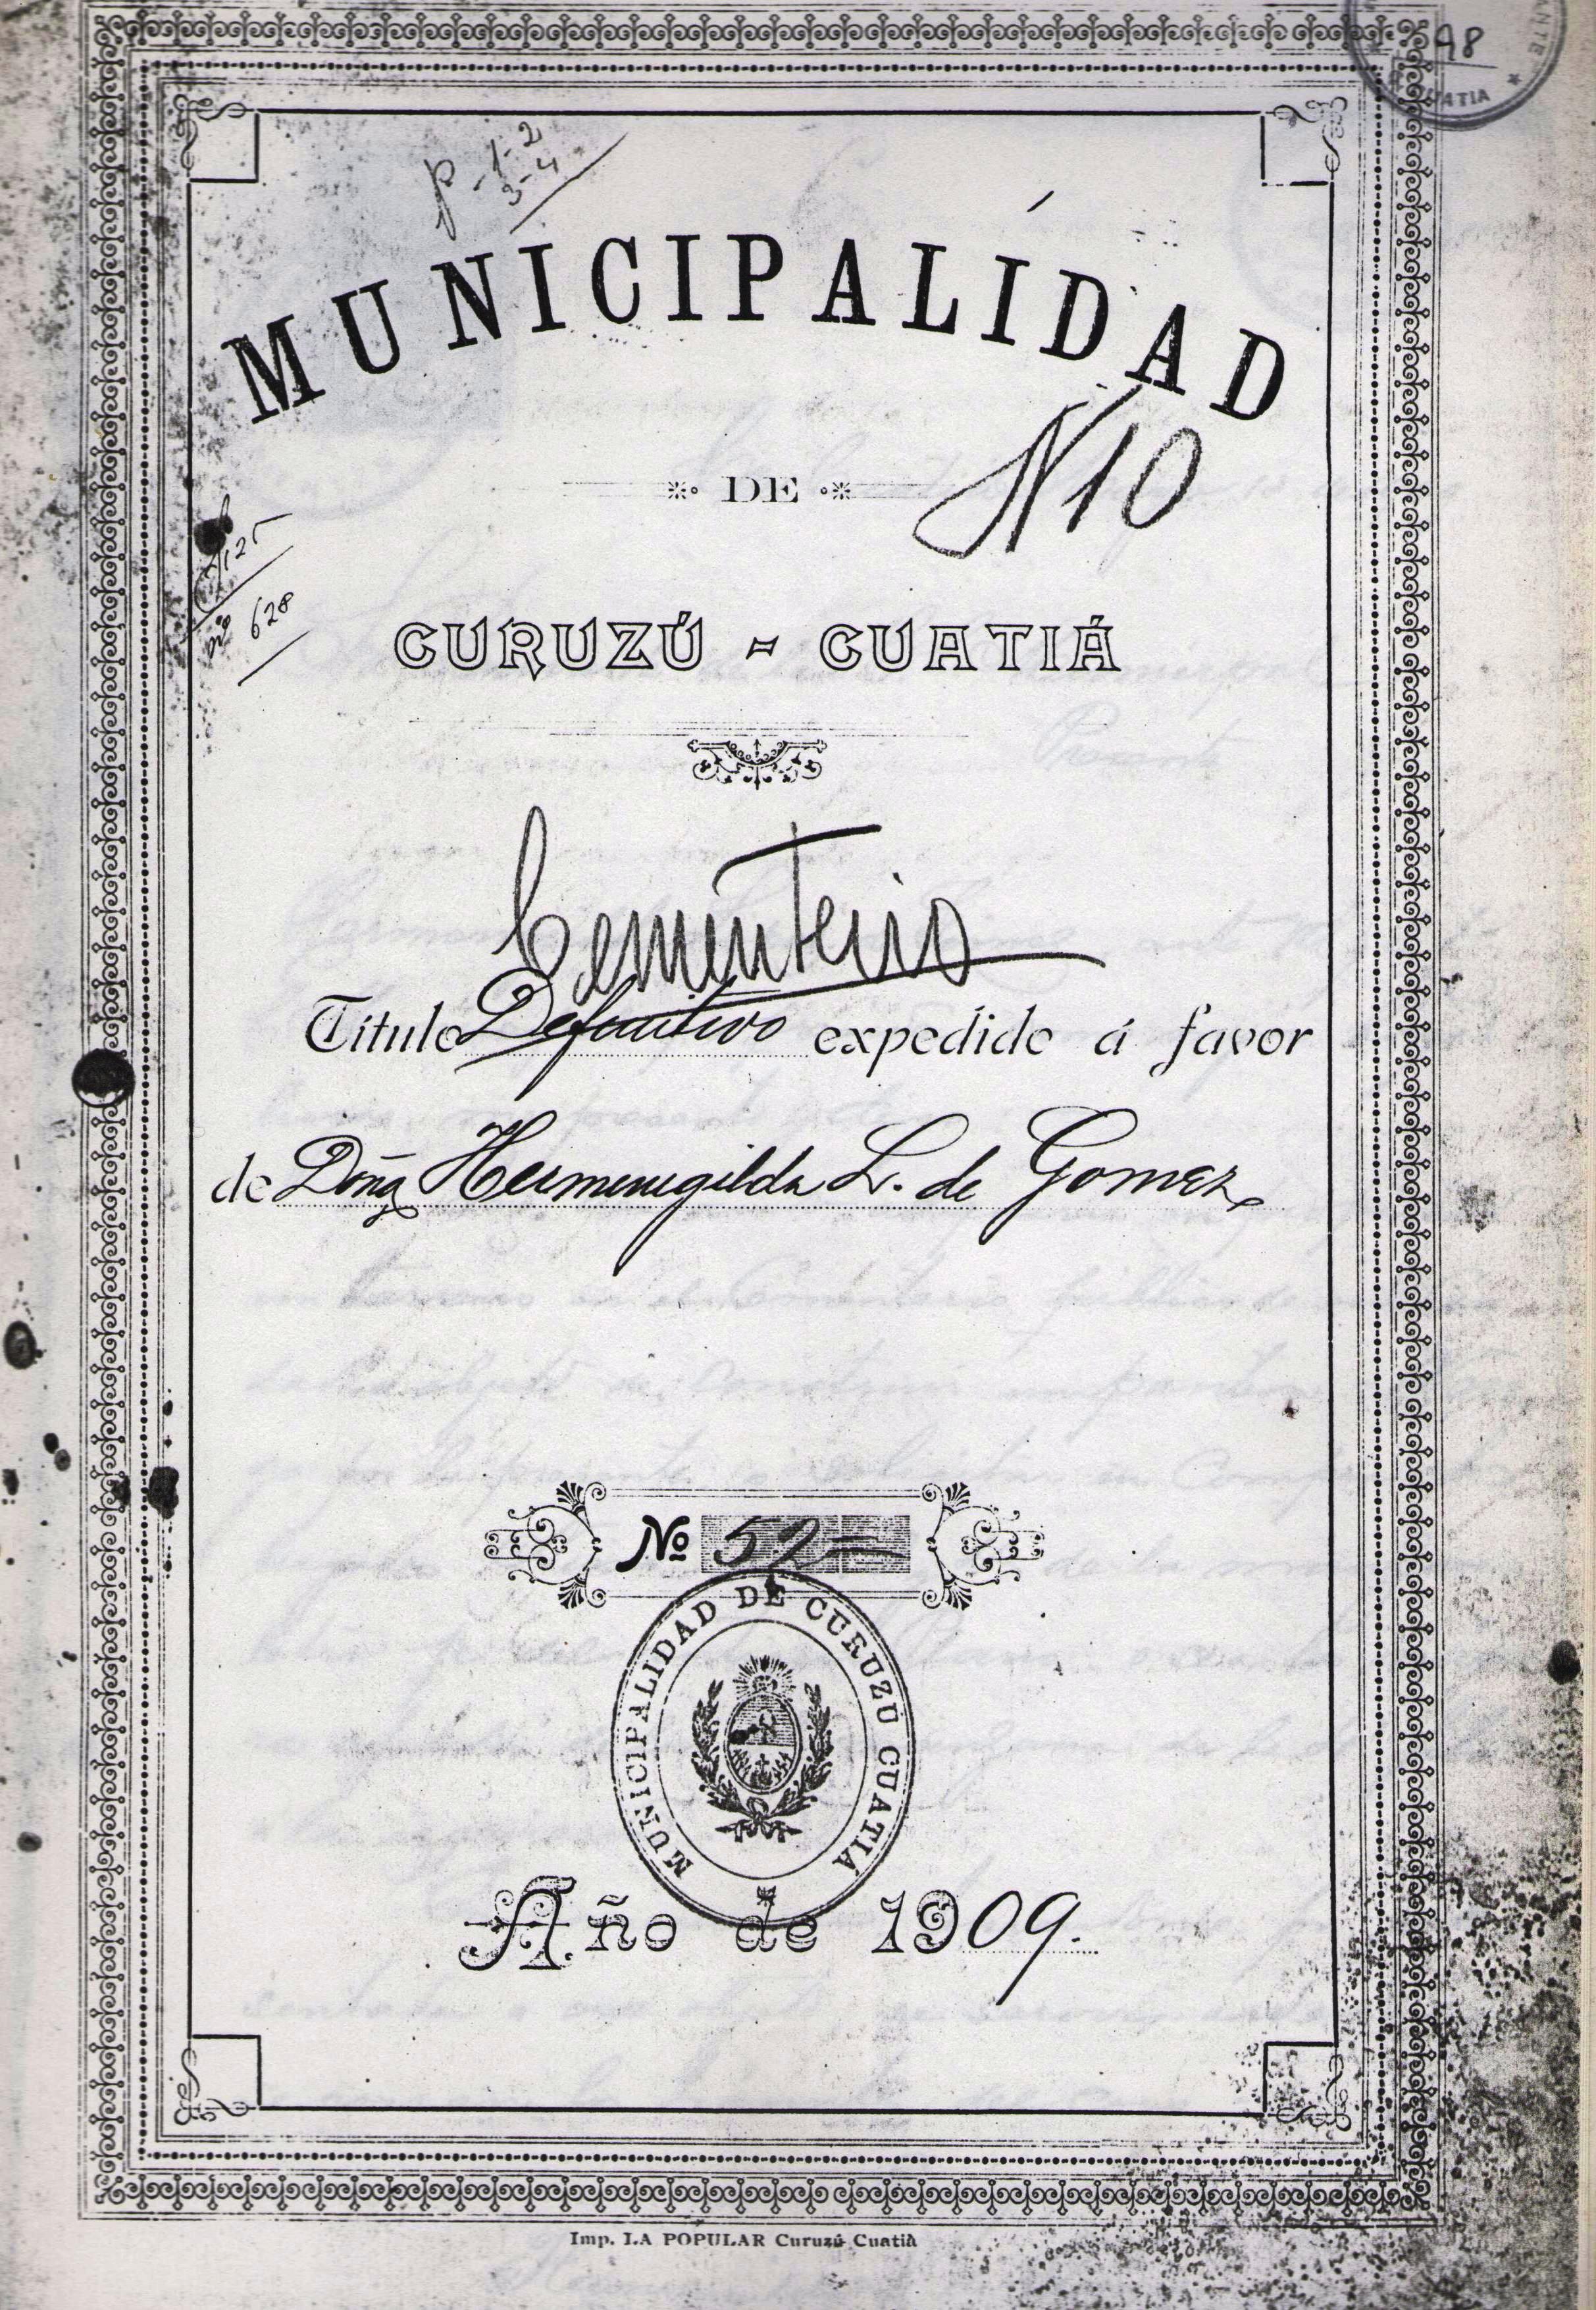 98
ANTE
UATIA
p-1-2
3-4
MUNICIPALIDAD
N 10
DE
125
nº 628
CURUZÚ - CUATIÁ
Cementerio
Título Definitivo expedido á favor
de Doña Hermenegilda L. de Gomez
No 52
MUNICIPALIDAD DE CURUZU CUATIA
Año de 1909.
Imp. LA POPULAR Curuzú Cuatiá